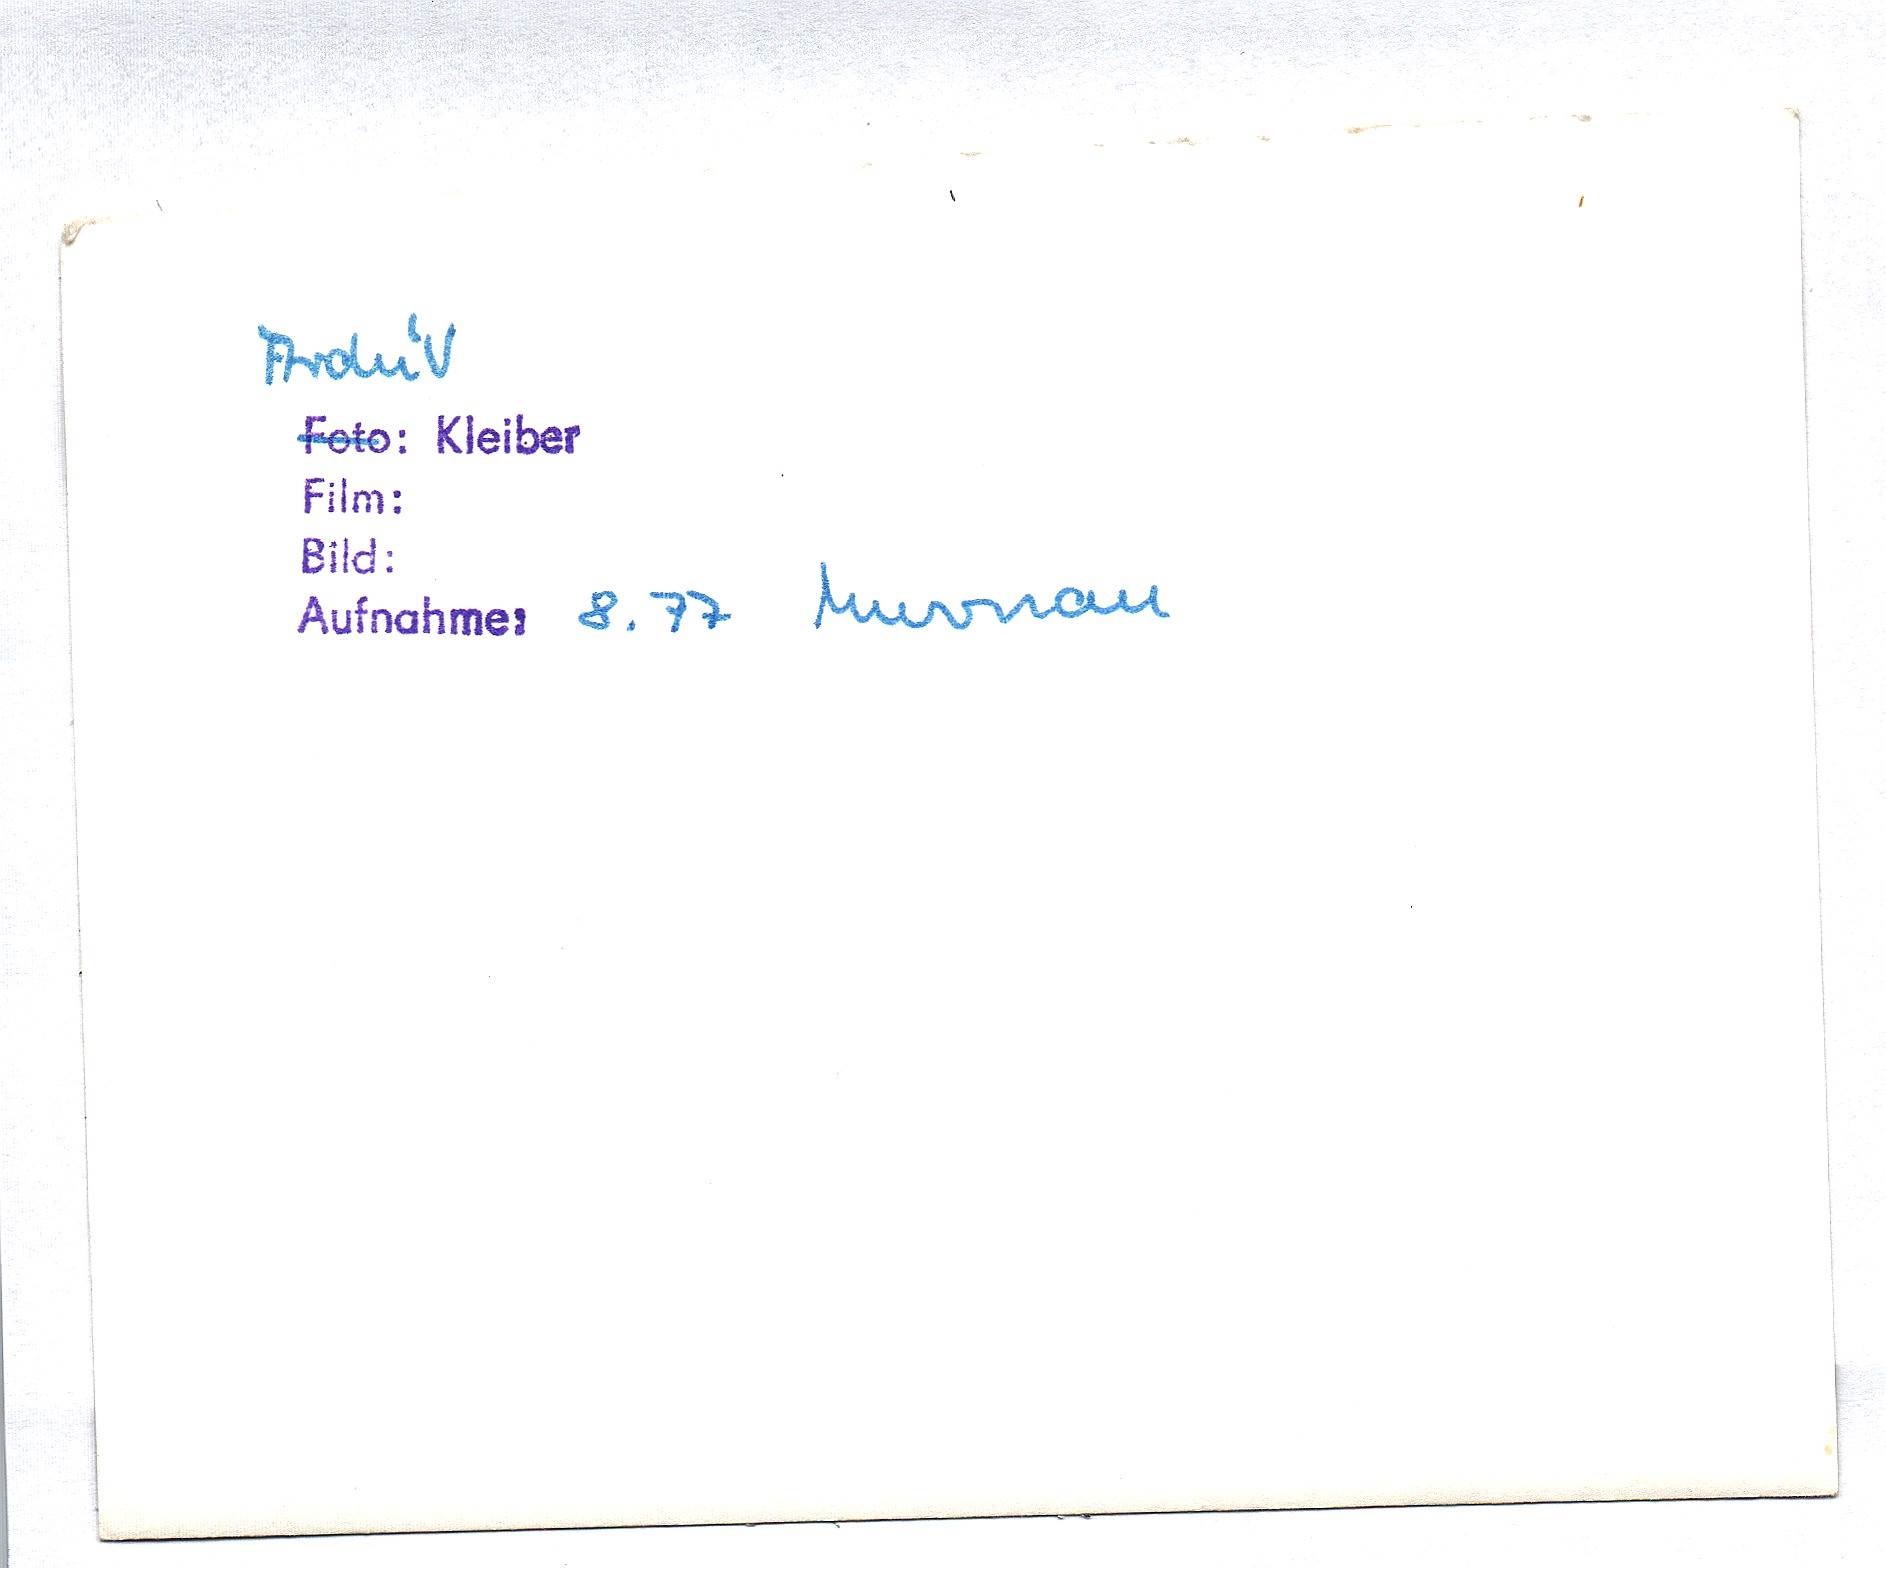 Archiv
Foto: Kleiber
Film:
Bild:
Aufnahme: 8.77 Murnau